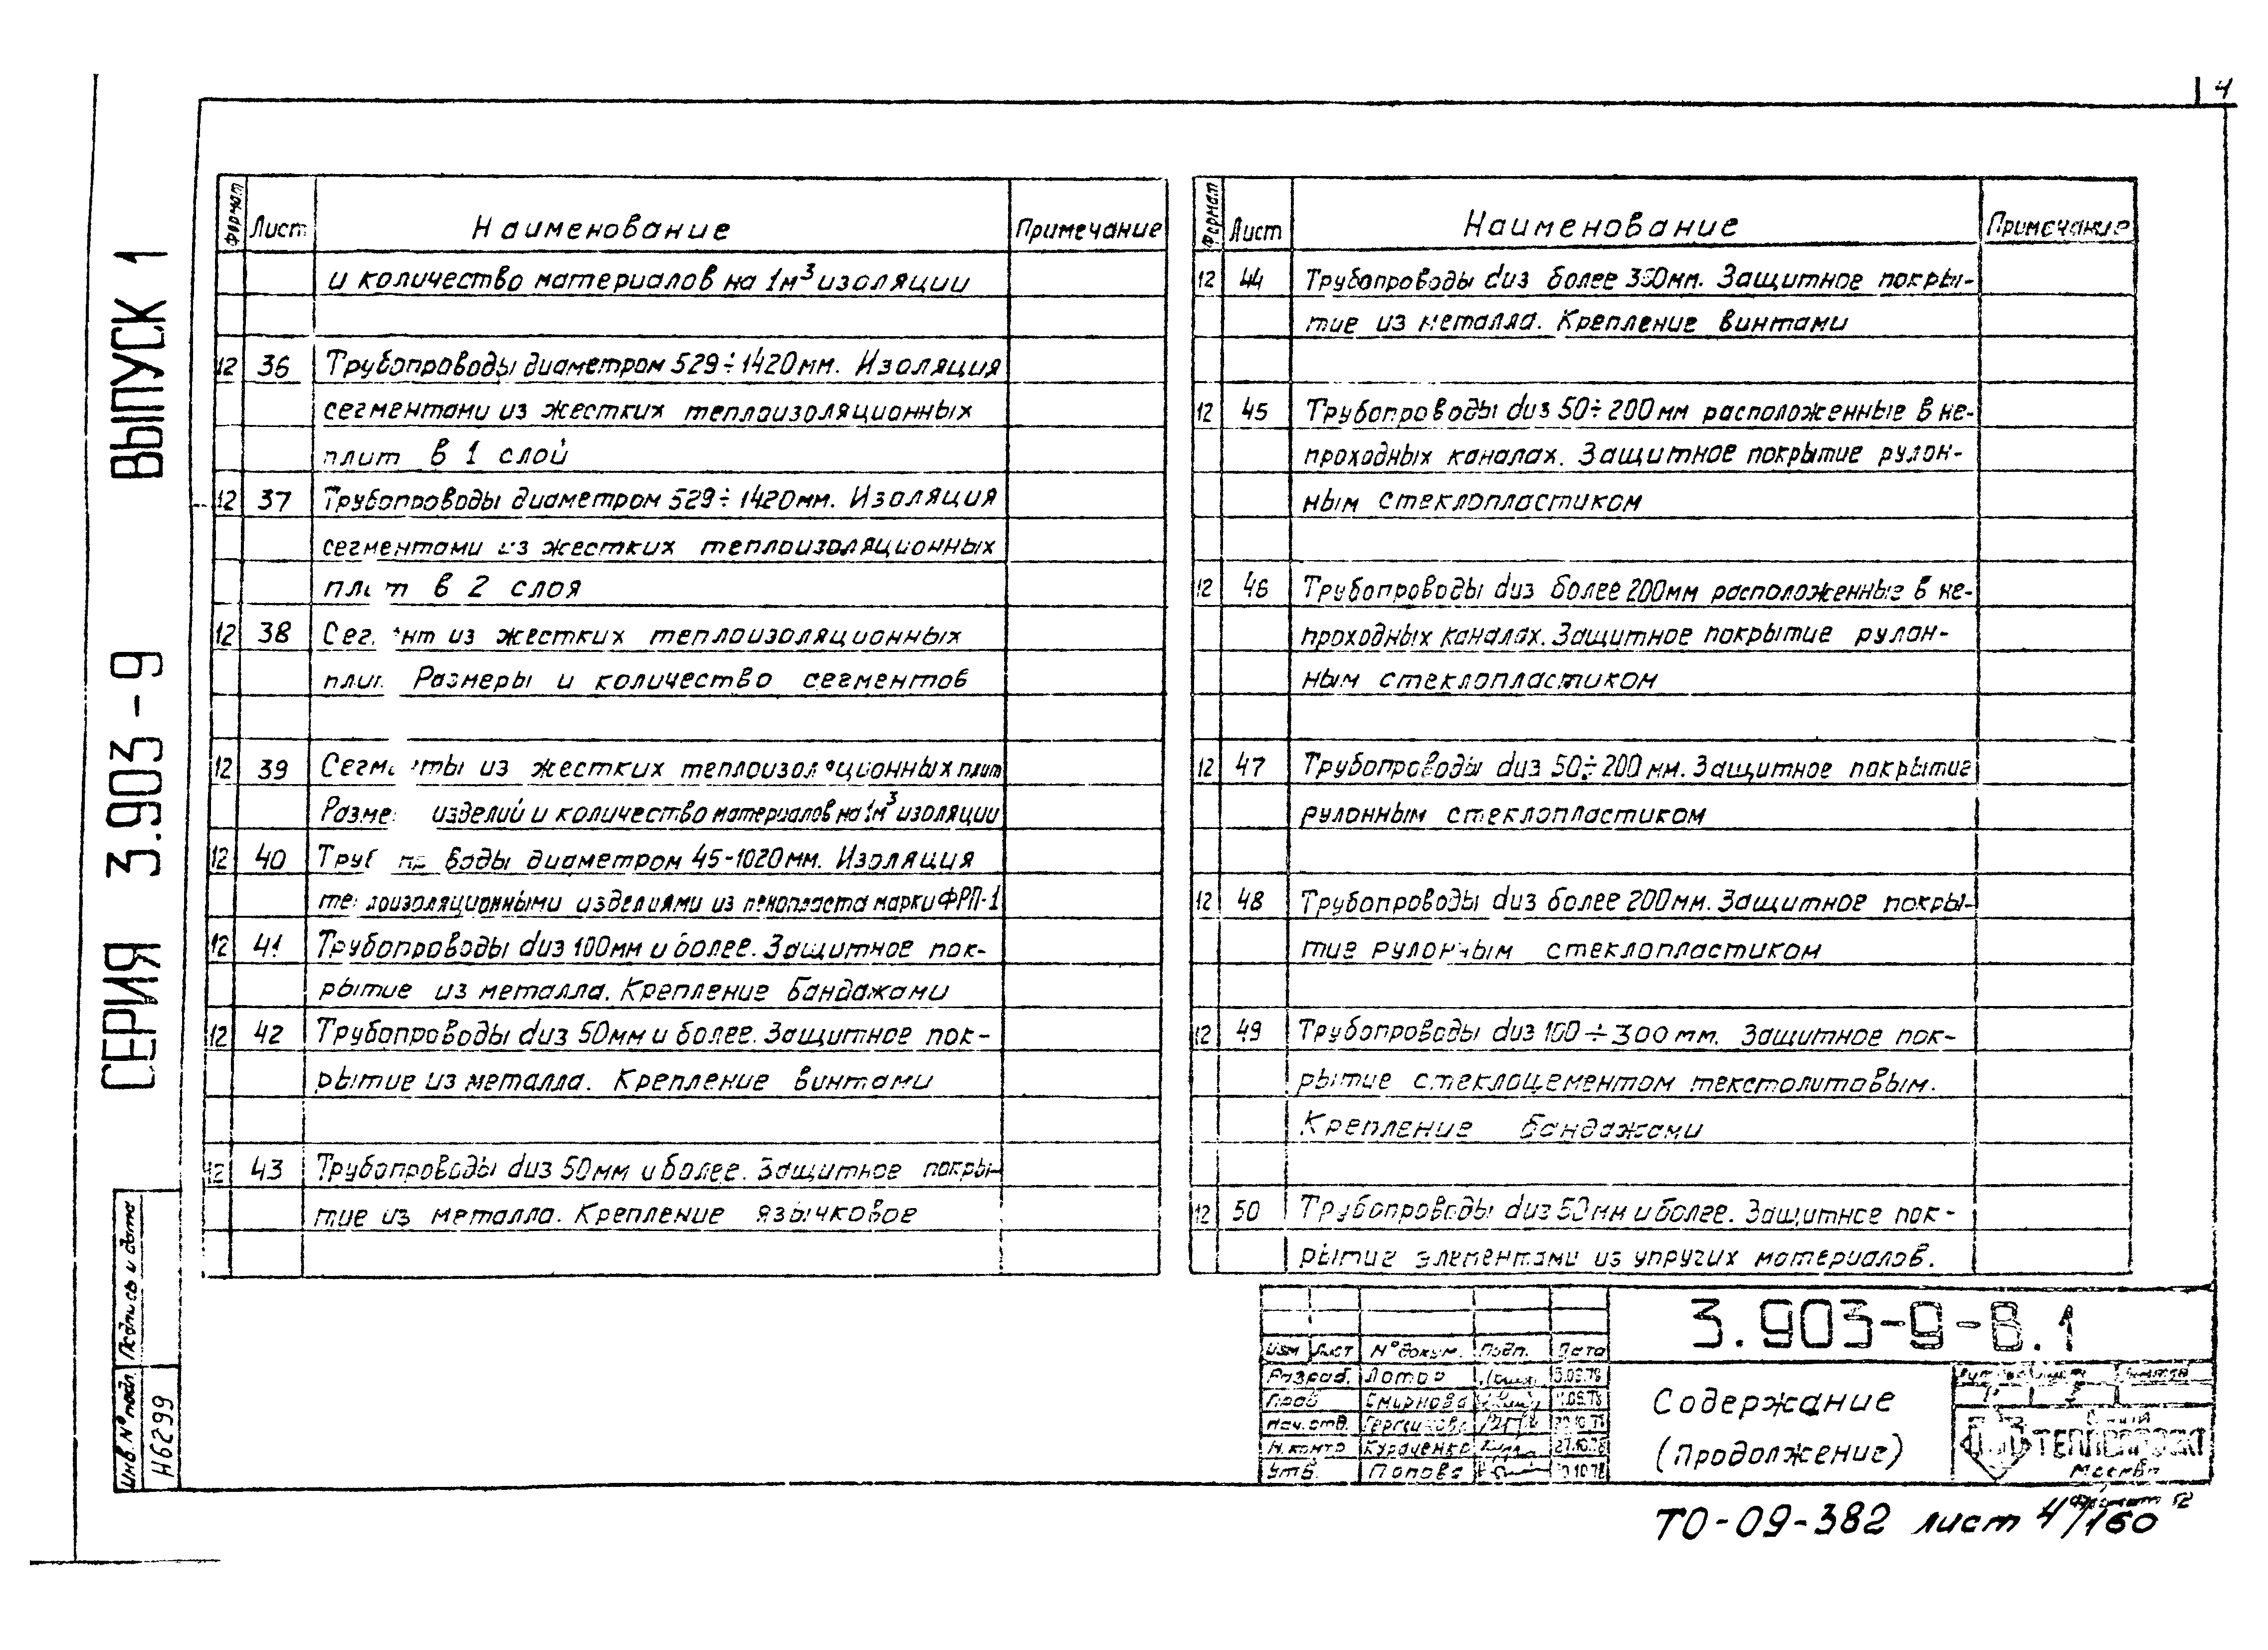 4
СЕРИЯ 3.903-9 ВЫПУСК 1
Формат Лист Наименование Примечание
и количество материалов на 1м³ изоляции
12 36 Трубопроводы диаметром 529÷1420мм. Изоляция
сегментами из жестких теплоизоляционных
плит в 1 слой
12 37 Трубопроводы диаметром 529÷1420мм. Изоляция
сегментами из жестких теплоизоляционных
плит в 2 слоя
12 38 Сегмент из жестких теплоизоляционных
плит. Размеры и количество сегментов
12 39 Сегменты из жестких теплоизоляционных плит
Размеры изделий и количество материалов на 1м³ изоляции
12 40 Трубопроводы диаметром 45-1020мм. Изоляция
теплоизоляционными изделиями из пенопласта марки ФРП-1
12 41 Трубопроводы dиз 100мм и более. Защитное пок-
рытие из металла. Крепление бандажами
12 42 Трубопроводы dиз 50мм и более. Защитное пок-
рытие из металла. Крепление винтами
12 43 Трубопроводы dиз 50мм и более. Защитное покры-
тие из металла. Крепление язычковое
Формат Лист Наименование Примечание
12 44 Трубопроводы dиз более 350мм. Защитное покры-
тие из металла. Крепление винтами
12 45 Трубопроводы dиз 50÷200мм расположенные в не-
проходных каналах. Защитное покрытие рулон-
ным стеклопластиком
12 46 Трубопроводы dиз более 200мм расположенные в не-
проходных каналах. Защитное покрытие рулон-
ным стеклопластиком
12 47 Трубопроводы dиз 50÷200 мм. Защитное покрытие
рулонным стеклопластиком
12 48 Трубопроводы dиз более 200мм. Защитное покры-
тие рулонным стеклопластиком
12 49 Трубопроводы dиз 100÷300мм. Защитное пок-
рытие стеклоцементом текстолитовым.
Крепление бандажами
12 50 Трубопроводы dиз 50мм и более. Защитное пок-
рытие элементами из упругих материалов.
Инв. № подл. Подпись и дата
Н6299
3.903-9-В.1
Изм Лист № докум. Подп. Дата
Разраб.
Пров Смирнова
Нач. отд.
Н. контр
Утв. Попова
Содержание
(продолжение)
ТЕПЛОПРОЕКТ
Москва
Формат 12
ТО-09-382 лист 4/160